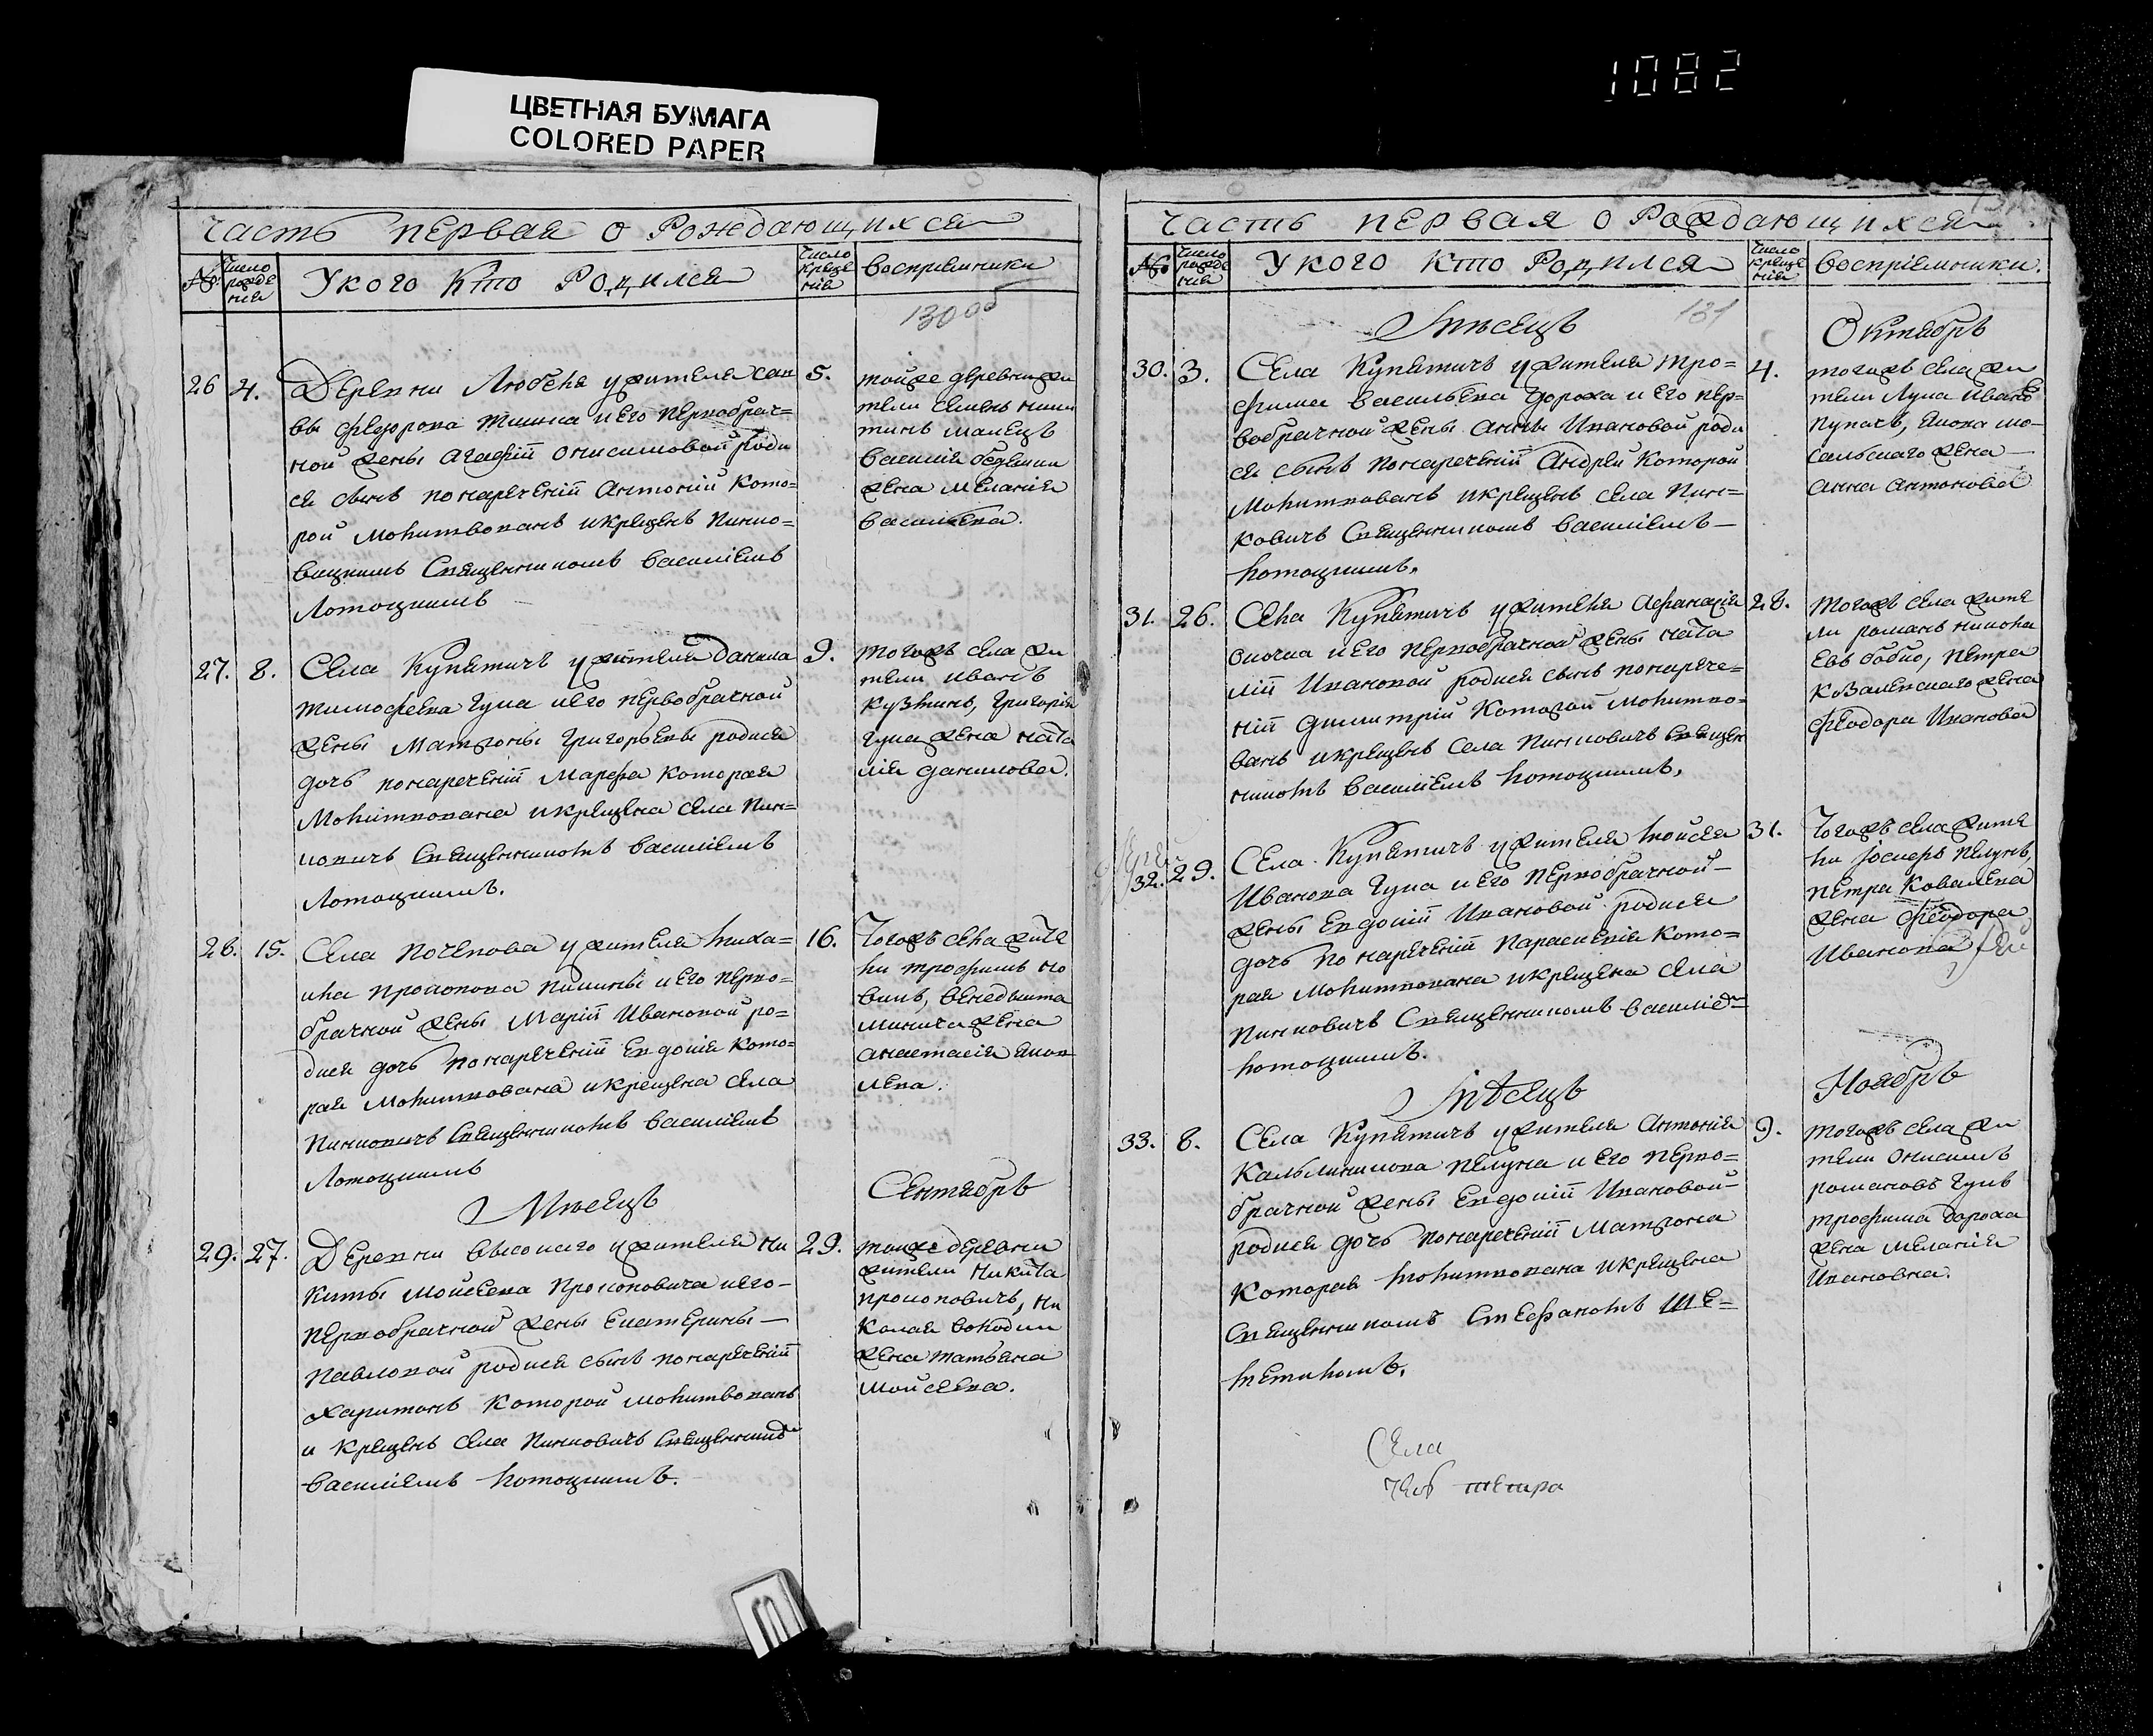 1082
ЦВЕТНАЯ БУМАГА
COLORED PAPER
Часть первая о Рождающихся
№
Число рожде нія
У кого кто Родился
Число креще нія
Восприемники
130 об
26 4.
Деревни Любеля у жителя Сав
5.
вы Федорова и его первобрач=
ной жены Агафіи Онисимовой роди
ся сынъ по нареченіи Антоній кото=
рой молитвованъ и крещенъ Пинко=
вицкимъ Священникомъ Василіемъ
Лотоцкимъ
тойже деревни жи
тели Семенъ Ники
тинъ Малецъ
Василія
жена Меланія
Васильева.
27. 8.
Села Купятичъ у жителя Данила
9.
Тимофеева Гука и его первобрачной
жены Матроны Григорьевы родися
дочъ по нареченіи Марфа которая
молитвована и крещена села Пин=
ковичъ Священникомъ Василіемъ
Лотоцкимъ.
тогожъ села жи
тели Иванъ
Кузминъ, Григорія
Гука жена Ната
лія Данилова.
28. 15.
Села Почепова у жителя Миха=
16.
ила Прокопова и его перво=
брачной жены Маріи Ивановой ро=
дися дочъ по нареченіи Евдокія кото=
рая молитвована и крещена села
Пинковичъ Священникомъ Василіемъ
Лотоцкимъ
Тогожъ села жите
ли Трофимъ Но
викъ, Венедыкта
Минича жена
Анастасія Яков
лева.
Мѣсецъ
Сентябръ
29. 27.
Деревни Высокаго у жителя Ни
29.
киты Мойсеева Прокоповича и его
первобрачной жены Екатерины
Павловой родися сынъ по нареченіи
Харитонъ которой молитвованъ
и крещенъ села Пинковичъ Священником
Василіемъ Лотоцкимъ.
тойже деревни
жители Никита
Прокоповичъ, Ни
колая
жена Татьяна
Мойсеева.
Часть первая о Рождающихся
№
Число рожде нія
У кого кто Родился
Число креще нія
Воспріемники.
131
Мѣсецъ
Октябръ
30. 3.
Села Купятичъ у жителя Тро=
4.
фима Васильева Дороха и его пер=
вобрачной жены Анны Ивановой роди
ся сынъ по нареченіи Андрей которой
молитвованъ и крещенъ села Пин=
ковичъ Священникомъ Василіемъ
Лотоцкимъ.
тогожъ села жи
тели Лука Иванов
Пукачъ, Якова Мо-
сальскаго жена
Анна Антонова
31. 26.
Села Купятичъ у жителя Афанасія
28.
и его первобрачной жены Ната
ліи Ивановой родися сынъ по нарече=
ніи Димитрій которой молитво=
ванъ и крещенъ села Пинковичъ Священ
никомъ Василіемъ Лотоцкимъ.
Тогожъ села жите
ли Романъ Никола
евъ Бобко, Петра
Ковалевскаго жена
Феодора Иванова
32. 29.
Села Купятичъ у жителя Мойсея
31.
Иванова Гука и его первобрачной
жены Евдокіи Ивановой родися
дочъ по нареченіи Параскевія кото=
рая молитвована и крещена села
Пинковичъ Священникомъ Василіем
Лотоцкимъ.
Тогожъ села жите
ли Іосифъ Пелукъ,
Петра Ковалева
жена Феодора
Иванова
Мѣсецъ
Ноябръ
33. 8.
Села Купятичъ у жителя Антонія
9.
Пелука и его перво=
брачной жены Евдокіи Ивановой
родися дочъ по нареченіи Матрона
которая молитвована и крещена
Священникомъ Стефаномъ Ше=
метиломъ.
тогожъ села жи
тели Онисимъ
Романовъ Гукъ
Трофима Дороха
жена Меланія
Ивановна.
Села